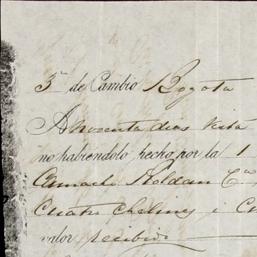 3ª de Cambio Bogotá
A noventa dias vista
no habiéndolo hecho por la 1
Camacho Roldan Cª
Cuatro Chelines i
valor recibido